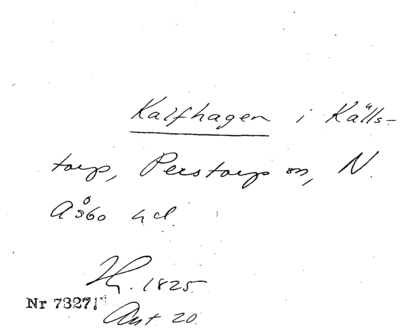 Kalfhagen i Källs-
torp, Perstorp sn, N.
Åsbo hd.
1825
Nr 7327
Ant 20